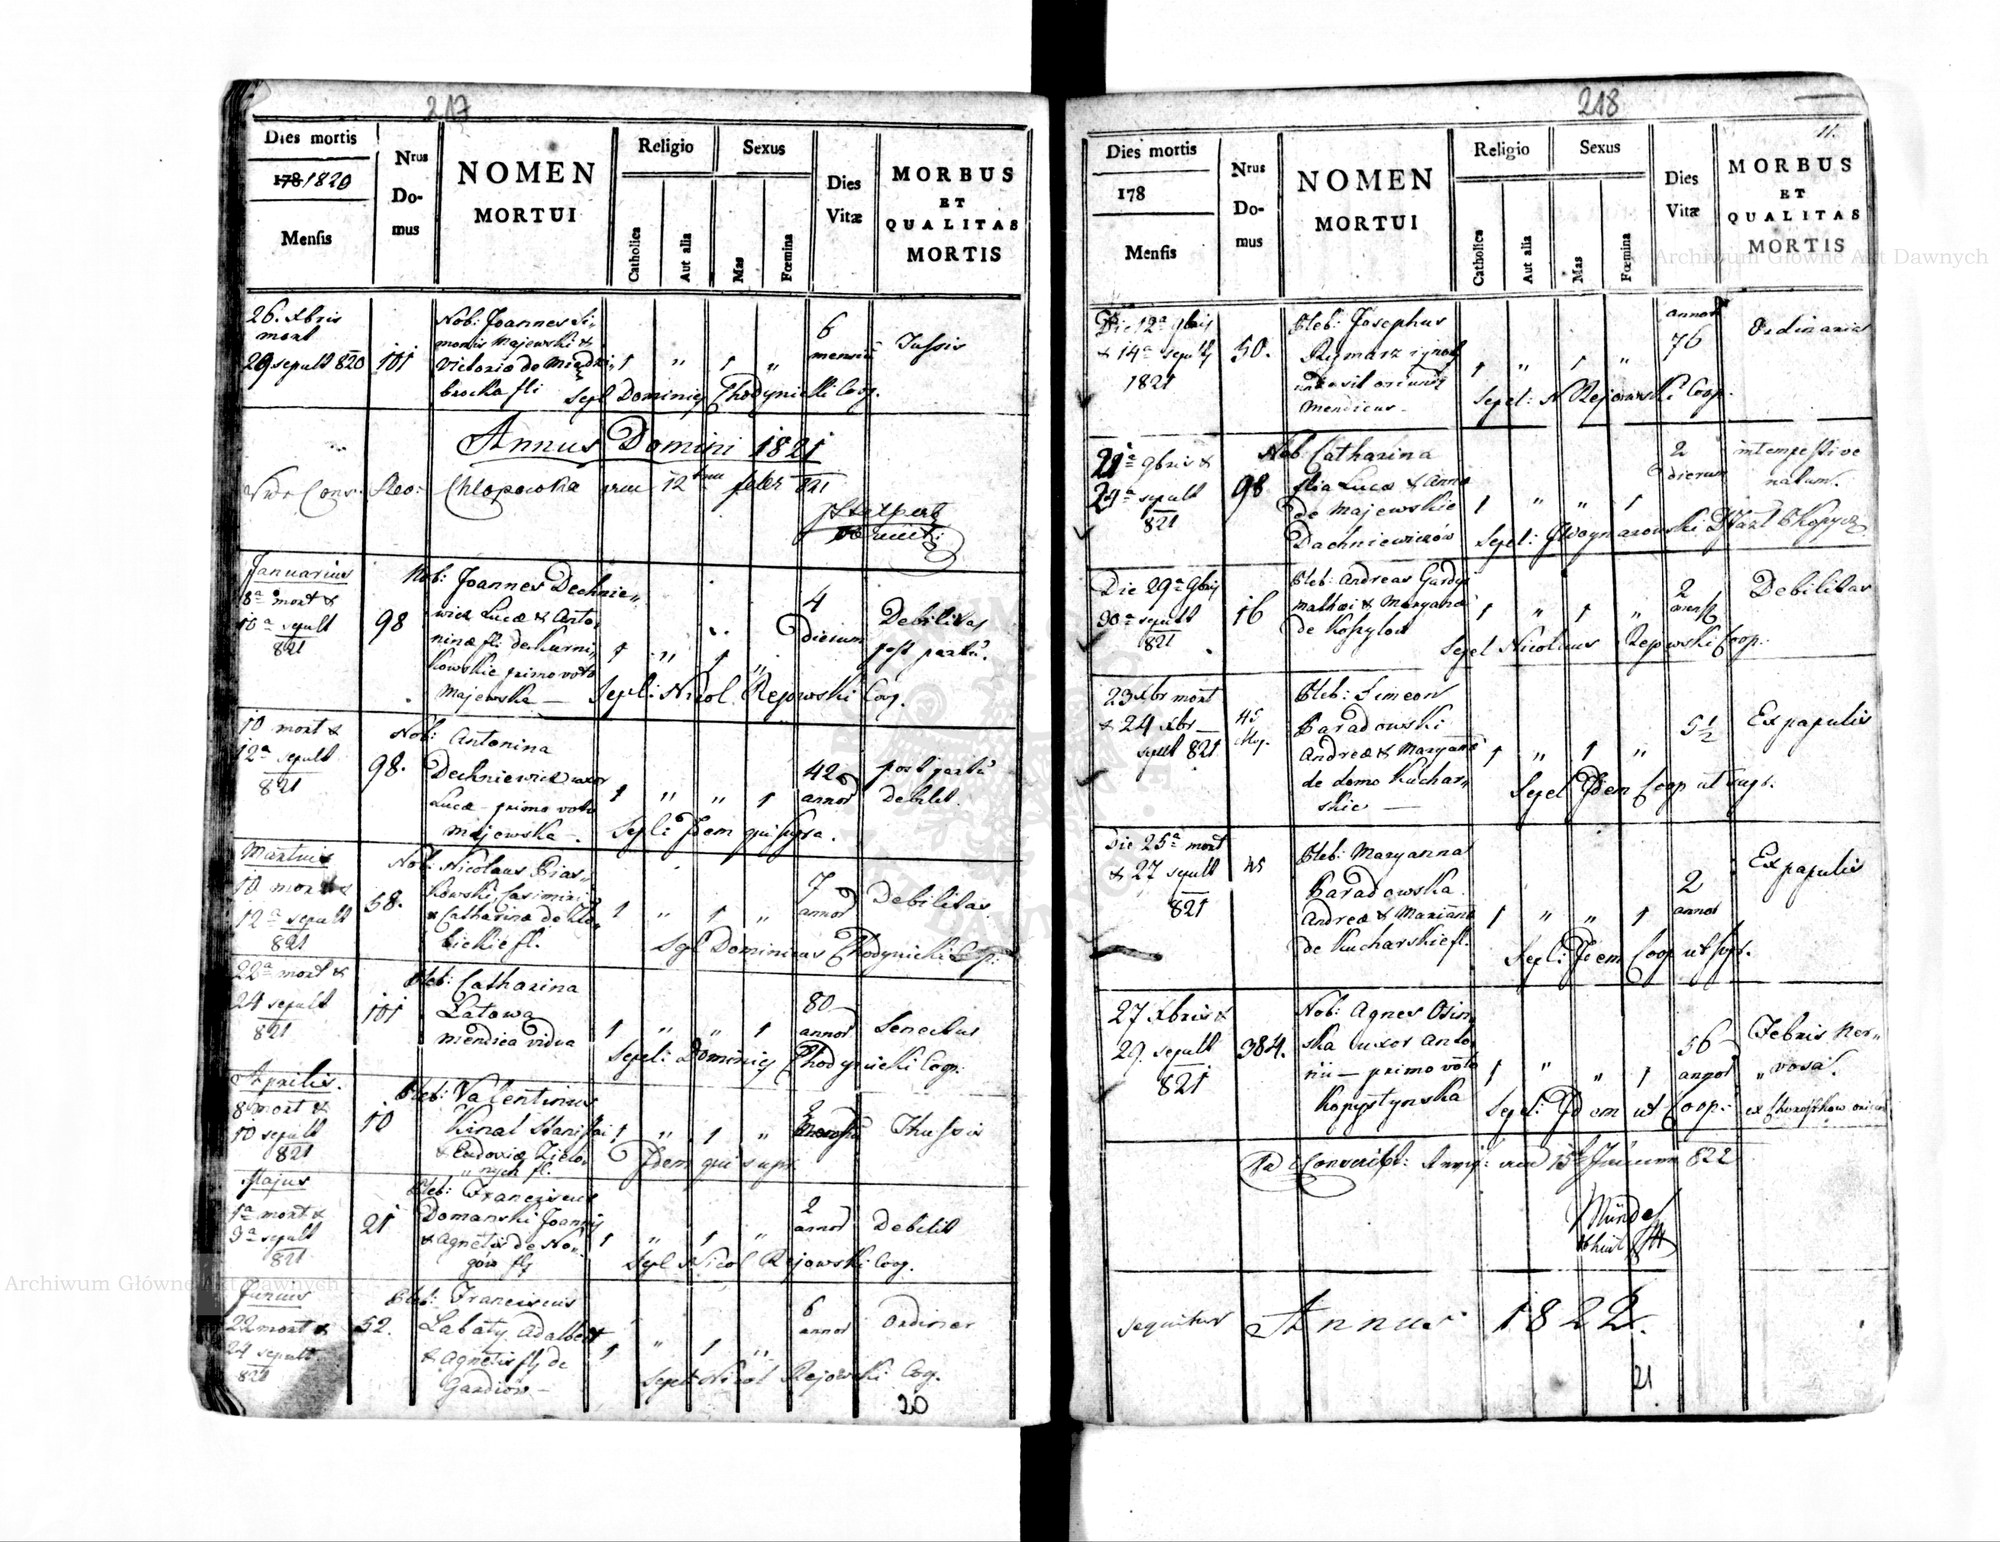 217
Dies mortis
178 1820
Mensis
Nrus
Do-
mus
NOMEN
MORTUI
Religio
Catholica
Aut alia
Sexus
Mas
Fœmina
Dies
Vitæ
MORBUS
ET
QUALITAS
MORTIS
26. Xbris
mort
29 sepult 820
101
Nob: Joannes Si„
monis Majewski &
Victoria de
brocka fli
1 „ 1 „
6
mensiū
Tussis
Sepl Dominicg Chodynicki Coop.
Annus Domini 1821
Chlopowka 12 febr 821
Januarius
8ª mort &
10ª sepult
821
98
Nob: Joannes Dechnie„
wicz Lucæ & Anto„
ninæ fl: de Kurni„
kowskie primo voto
Majewska —
1 „ 1 „
4
dierum
Debilitas
post partū.
Sepl: Nicol. Rejowski Coop.
10 mort &
12ª sepult
821
98.
Nob: Antonina
Dechniewicz uxor
Lucæ — primo voto
Majewska —.
1 „ „ 1
42
annor
post partū
debilit.
Sepl: Idem qui supra.
Martius
10 mort &
12ª sepult
821
58.
Nob: Nicolaus Pias„
kowski Casimiri
& Catharinæ de
bickie fl.
1 „ 1 „
7
annor
Debilitas
Sepl Dominicus Chodynicki Coop:
22ª mort &
24 sepult
821
101
Pleb: Catharina
Latowa
mendica vidua
1 „ „ 1
80
annor
Senectus
Sepel: Dominicg Chodynicki Coop:
Aprilis.
8 mort &
10 sepult
821
10
Pleb: Valentinus
Kinal Stanislai
& Eudoviæ Zielo„
„nych fl.
1 „ 1 „
Thussis
Idem qui supr.
Majus
1ª mort &
3ª sepult
821
21
Pleb: Franciscus
Domanski Joannis
& Agnetis de No„
gów flg
1 „ 1 „
2
annor
Debilit
Sepl Nicol Rejowski Coop.
Junius
22 mort &
24 sepult
821
52.
Pleb: Franciscus
Labaty Adalbert
& Agnetis flg de
Gardiów —
1 „ 1 „
6
annor
Ordinar
Sepelt Nicol Rejowski Coop.
20
218
11.
Dies mortis
178
Mensis
Nrus
Do-
mus
NOMEN
MORTUI
Religio
Catholica
Aut alia
Sexus
Mas
Fœmina
Dies
Vitæ
MORBUS
ET
QUALITAS
MORTIS
Die 12ª 9bris
& 14ª sepultg
1821
50.
Pleb: Josephus
Rymarz
Mendicus —
1 „ 1 „
annor
76
Ordinaria
Sepel: N Rejowski Coop.
21ª 9bris &
24ª sepult
821
98
Nob Catharina
flia Lucæ & Anna
de Majewskie
Dachniewiczów
1 „ „ 1
2
dierum
intempestive
natum.
Die 29ª 9bris
30ª sepult
821
16
Pleb: Andreas Gardyś
Mathæi & Maryanna
de Kopylow
1 „ 1 „
2
Debilitas
Sepel Nicolaus Rejowski Coop:
23 Xbr mort
& 24 Xbr —
sepult 821
45
Pleb: Simeon
Paradowski
Andreæ & Maryanna
de domo Kuchar„
skie —
1 „ 1 „
5½
Ex papulis
Sepel Idem Coop ut supr.
Die 25ª mort
& 27 sepult
821
45
Pleb: Maryanna
Paradowska.
Andreæ & Marianna
de Kucharskie fl.
1 „ „ 1
2
annor
Ex papulis
Sepl: Idem Coop ut supr.
27 Xbris &
29. sepult
821
384.
Nob: Agnes Osin„
ska uxor Anto„
nii — primo voto
Kopystynska
1 „ „ 1
56
annor
Febris ner„
„vosa.
Sepel: Idem ut Coop:
822
sequitur Annus 1822.
21
Archiwum Główne Akt Dawnych
Archiwum Główne Akt Dawnych